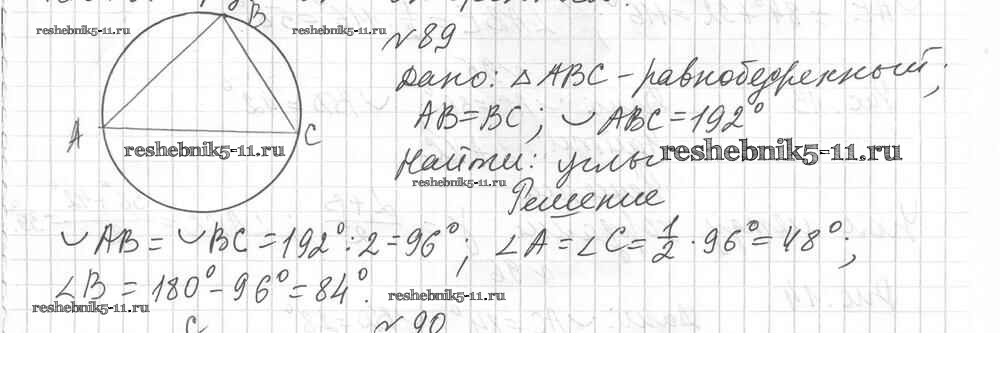 B
reshebnik5-11.ru
reshebnik5-11.ru
N 89
Дано: △ ABC - равнобедренный;
AB = BC; ◡ ABC = 192°
A
C
reshebnik5-11.ru
Найти: углы
reshebnik5-11.ru
reshebnik5-11.ru
Решение
◡ AB = ◡ BC = 192° : 2 = 96°; ∠A = ∠C = 1/2 · 96° = 48°;
∠B = 180° - 96° = 84°.
reshebnik5-11.ru
reshebnik5-11.ru
C
N 90